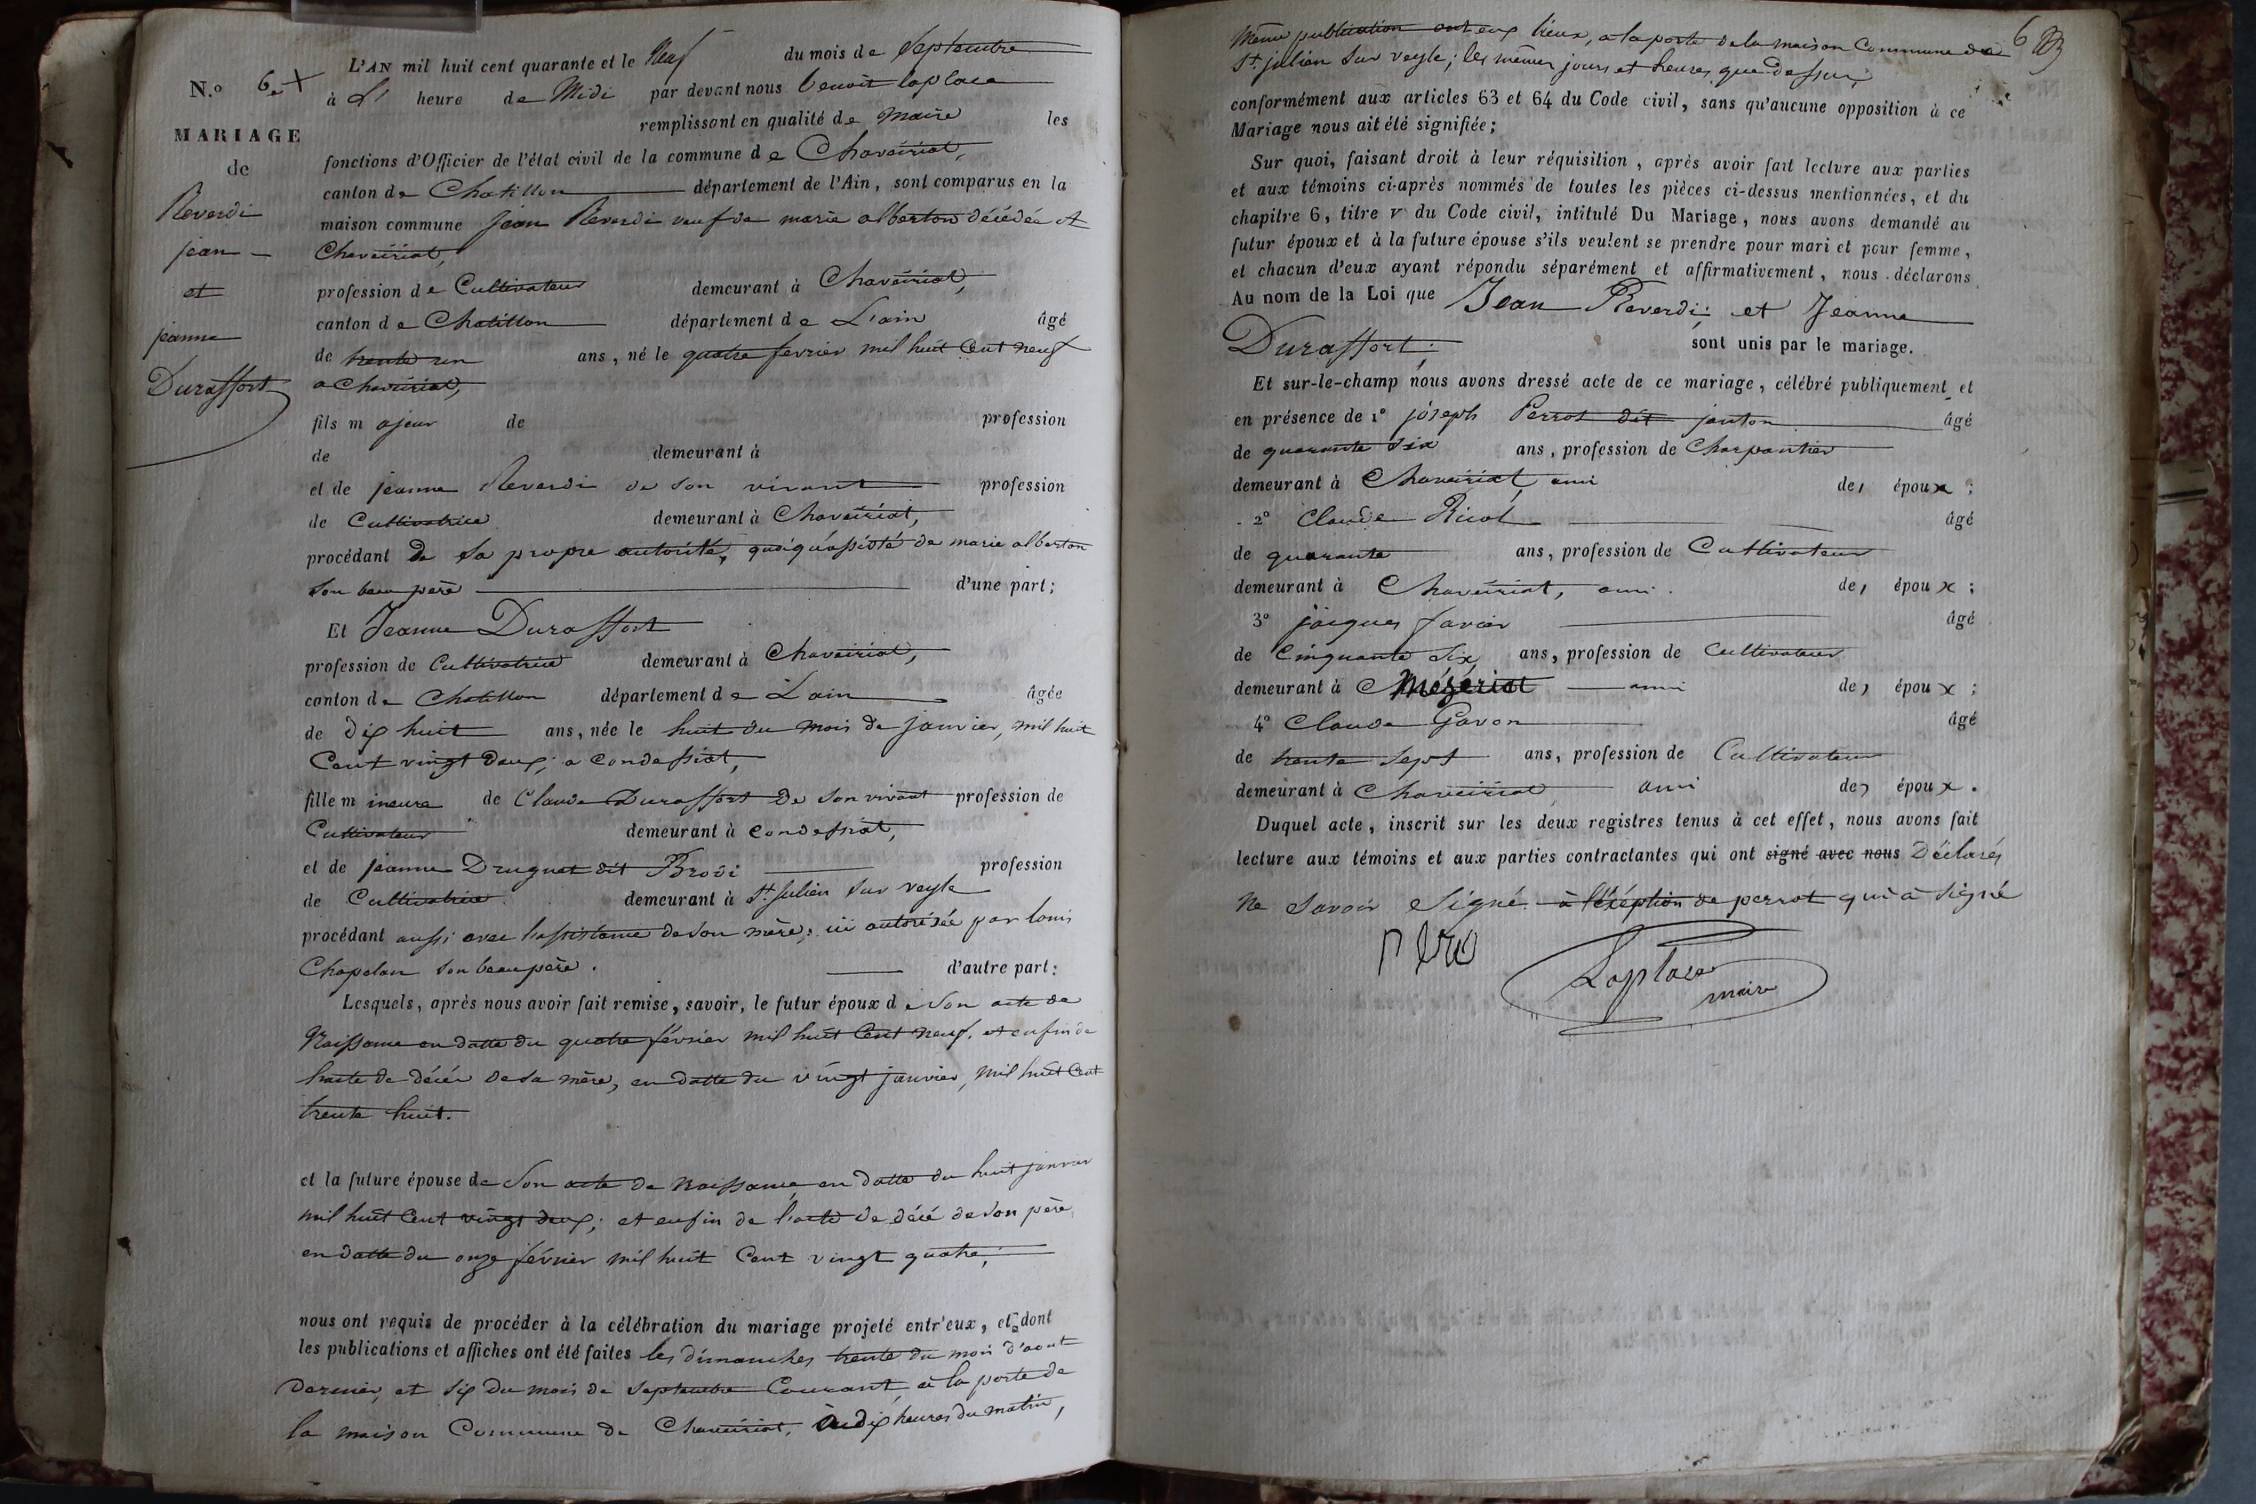 N.° 6e
MARIAGE
de
Reverdi
jean
et
jeanne
Duraffort
L'AN mil huit cent quarante et le Neuf du mois de Septembre
à L' heure de Midi par devant nous benoit laplace
remplissant en qualité de Maire les
fonctions d'Officier de l'état civil de la commune de Chaveiriat,
canton de Chatillon département de l'Ain, sont comparus en la
maison commune Jean Reverdi veuf de marie alberton décédée et
Chaveiriat,
profession de Cultivateur demeurant à Chaveiriat,
canton de Chatillon département de L'ain âgé
de trente un ans, né le quatre fevrier mil huit Cent neuf
a Chaveiriat,
fils majeur de profession
de demeurant à
et de jeanne Reverdi de son vivant profession
de Cultivatrice demeurant à Chaveiriat,
procédant de sa propre autorité, quoiqu'assisté de marie alberton
son beau père d'une part;
Et Jeanne Duraffort
profession de Cultivatrice demeurant à Chaveiriat,
canton de Chatillon département de Lain âgée
de dix huit ans, née le huit du mois de janvier, mil huit
Cent vingt deux; a Condessiat,
fille mineure de Claude Duraffort de son vivant profession de
Cultivateur demeurant à Condessiat,
et de jeanne Druguet dit Brodi profession
de Cultivatrice demeurant à St. Julien Sur veyle
procédant aussi avec l'assistance de son mère, ici autorisée par louis
Chapelan son beau père. d'autre part:
Lesquels, après nous avoir fait remise, savoir, le futur époux de son acte de
Naissance en datte du quatre février mil huit Cent neuf. et enfin de
lacte de décés de sa mère, en datte du vingt janvier, mil huit Cent
trente huit.
et la future épouse de son acte de naissance en datte du huit janvier
mil huit Cent vingt deux; et enfin de l'acte de décé de son père
en datte du onze février mil huit Cent vingt quatre;
nous ont requis de procéder à la célébration du mariage projeté entr'eux, et dont
les publications et affiches ont été faites les dimanches trente du mois d'aout
dernier, et six du mois de septembre Courant, à la porte de
la maison Commune de Chaveiriat, à dix heures du matin,
même publication ont eus lieux, a la porte de la maison Commune de 6
St. jullien Sur veyle; les mêmes jours et heures que dessus;
conformément aux articles 63 et 64 du Code civil, sans qu'aucune opposition à ce
Mariage nous ait été signifiée;
Sur quoi, faisant droit à leur réquisition, après avoir fait lecture aux parties
et aux témoins ci-après nommés de toutes les pièces ci-dessus mentionnées, et du
chapitre 6, titre V du Code civil, intitulé Du Mariage, nous avons demandé au
futur époux et à la future épouse s'ils veulent se prendre pour mari et pour femme,
et chacun d'eux ayant répondu séparément et affirmativement, nous déclarons
Au nom de la Loi que Jean Reverdi; et Jeanne
Duraffort; sont unis par le mariage.
Et sur-le-champ nous avons dressé acte de ce mariage, célébré publiquement et
en présence de 1° joseph Perrot dit janton âgé
de quarante six ans, profession de Charpantier
demeurant à Chaveiriat, ami des époux;
2° Claude Ricol âgé
de quarante ans, profession de Cultivateur
demeurant à Chaveiriat, ami des époux;
3° jacques favier âgé
de Cinquante Six ans, profession de Cultivateur
demeurant à Mézériat ami des époux;
4° Claude Gavon âgé
de trente sept ans, profession de Cultivateur
demeurant à Chaveiriat ami des époux.
Duquel acte, inscrit sur les deux registres tenus à cet effet, nous avons fait
lecture aux témoins et aux parties contractantes qui ont signé avec nous Déclarés
Ne savoir Signé. à l'éxéption de perrot qui a signé
Laplace
maire